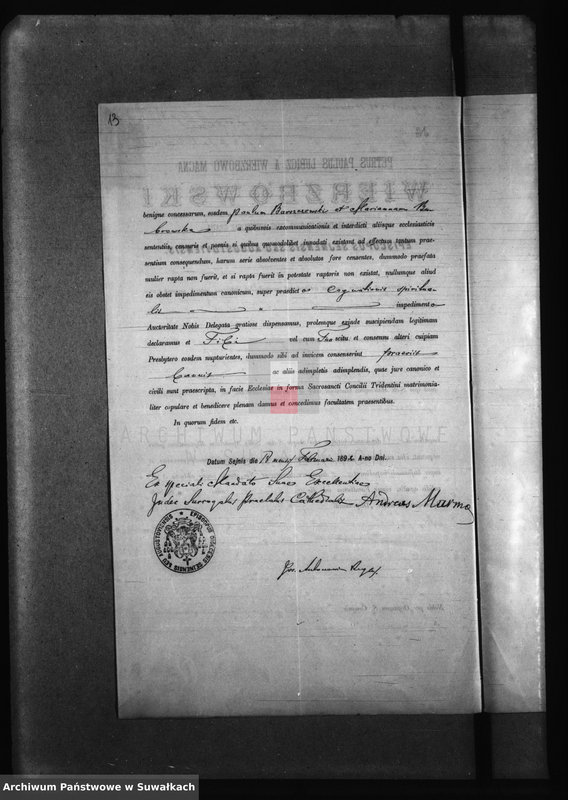 13
PETRUS PAULUS LUBICZ A WIERZBOWO MAGNA
WIERZBOWSKI
benigne concessarum, eosdem Paulum Baroszewski et Mariannam Bu-
browska a quibusvis excommunicationis et interdicti aliisque ecclesiasticis
sententiis, censuris et poenis si quibus quomodolibet innodati existant ad effectum tantum prae-
sentium consequendum, harum serie absolventes et absolutos fore censentes, dummodo praefata
mulier rapta non fuerit, et si rapta fuerit in potestate raptoris non existat, nullumque aliud
eis obstet impedimentum canonicum, super praedicto Cognationis spiritua-
lis impedimento
Auctoritate Nobis Delegata gratiose dispensamus, prolemque exinde suscipiendam legitimam
declaramus et Tibi vel cum Tuo scitu et consensu alteri cuipiam
Presbytero eosdem nupturientes, dummodo sibi ad invicem consenserint praeviis
Bannis ac aliis adimpletis adimplendis, quae jure canonico et
civili sunt praescripta, in facie Ecclesiae in forma Sacrosancti Concilii Tridentini matrimonia-
liter copulare et benedicere plenam damus et concedimus facultatem praesentibus.
In quorum fidem etc.
ARCHIWUM PAŃSTWOWE
Datum Sejnis die mensis Februarii 189 A-no Dni.
Ex speciali Mandato Suae Excellentiae
Judex Surrogatus Praelatus Cathedralis Andreas
Archiwum Państwowe w Suwałkach